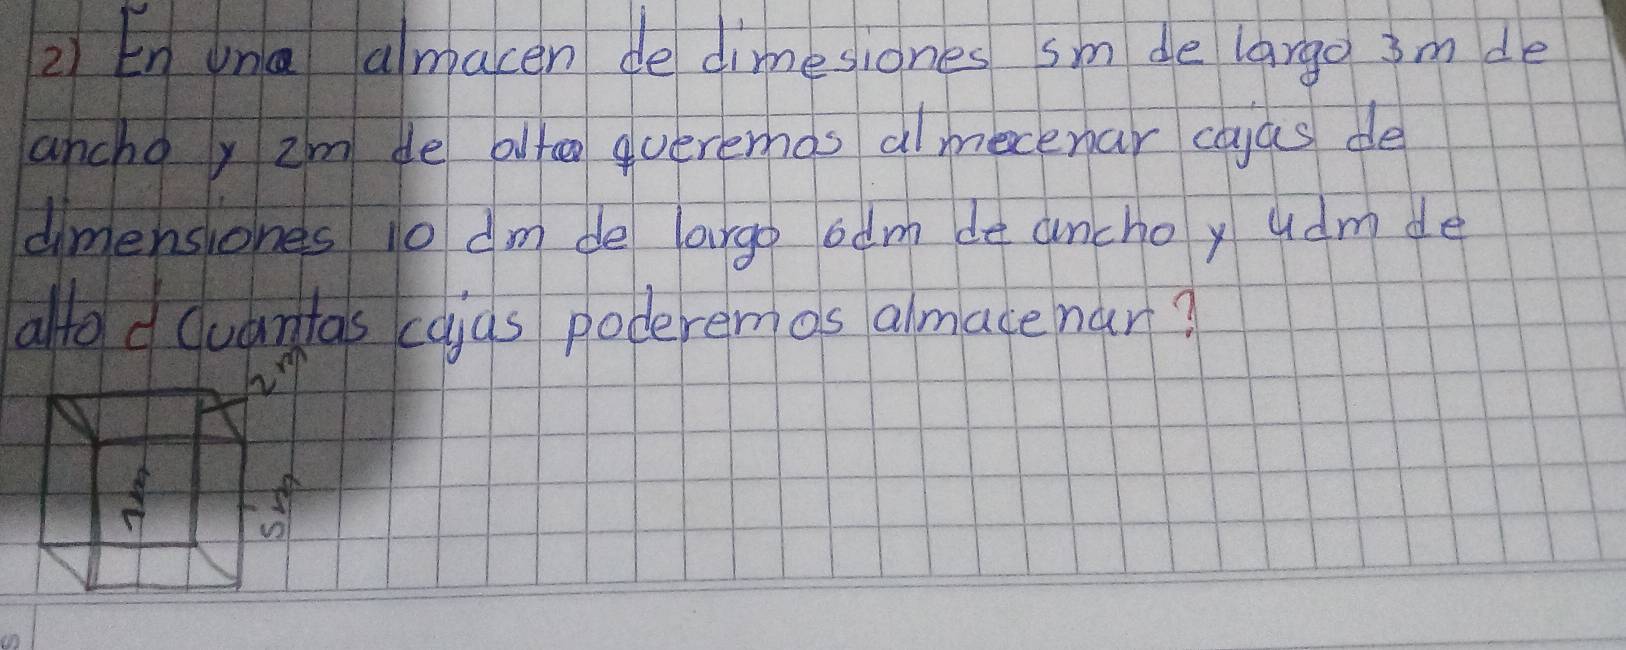 2) En una almacen de dimesiones 5m de largo 3m de
ancho y 2m de alto queremos almecenar cajas de
dimensiones 10 dm de largo 6dm de ancho y 4dm de
alto d Cuantas cajas poderemos almacenar?
2m
5m